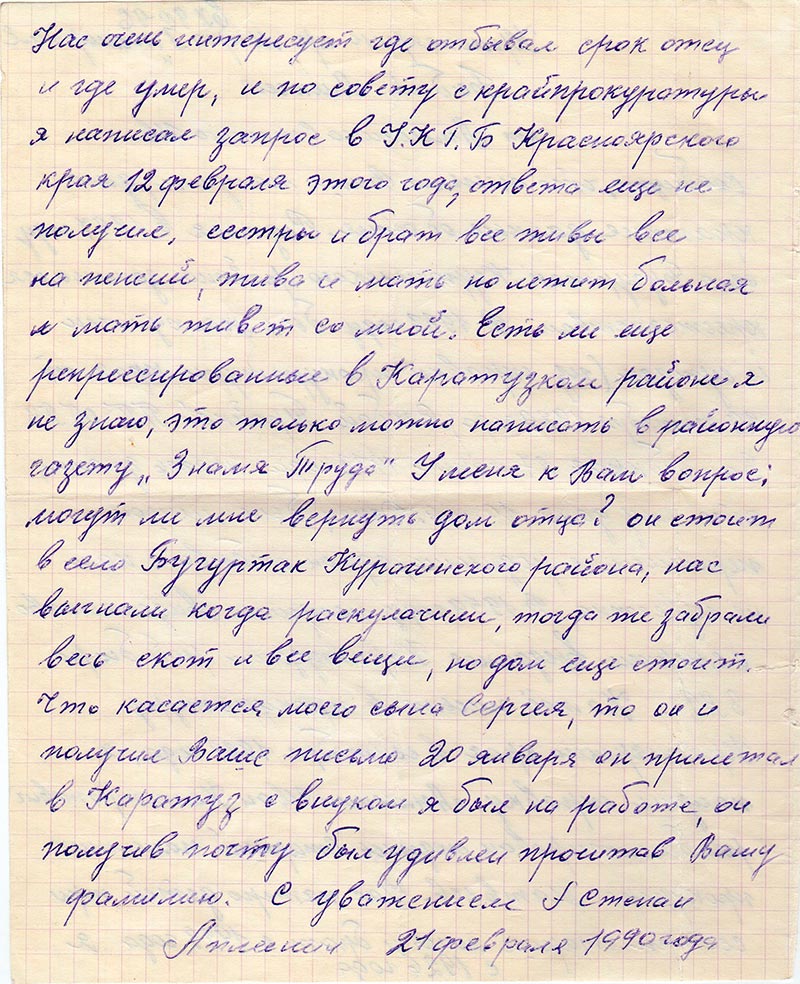 Нас очень интересует где отбывал срок отец
и где умер, и по совету с крайпрокуратуры
я написал запрос в У.К.Г.Б Красноярского
края 12 февраля этого года, ответа еще не
получил, сестры и брат все живы все
на пенсий, жива и мать но лежит больная
и мать живет со мной. Есть ли еще
репрессированные в Каратузком районе я
не знаю, это только можно написать в районную
газету „Знамя Труда" У меня к Вам вопрос;
могут ли мне вернуть дом отца? он стоит
в село Бугуртак Курагинского района, нас
выгнали когда раскулачили, тогда же забрали
весь скот и все вещи, но дом еще стоит.
Что касается моего сына Сергея, то он и
получил Ваше письмо 20 января он прилетал
в Каратуз с внуком я был на работе, он
получив почту был удивлен прочитав Вашу
фамилию. С уважением Степан
21 февраля 1990 года